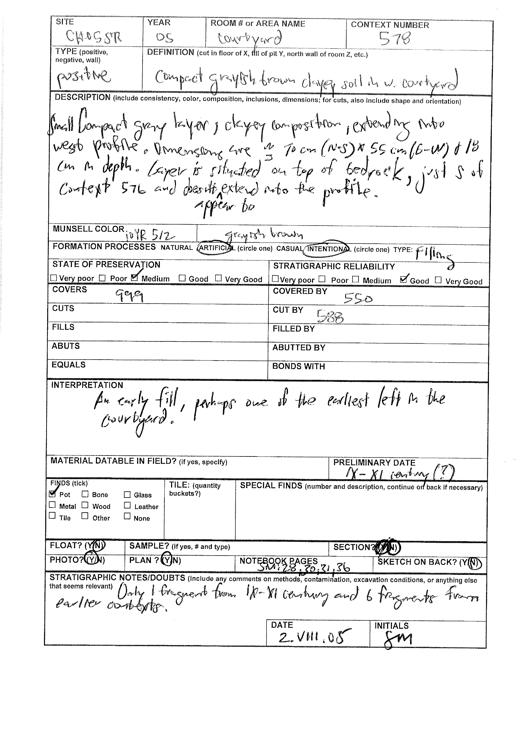 SITE YEAR ROOM # or AREA NAME CONTEXT NUMBER
CH05SR 05 courtyard 578
TYPE (positive, negative, wall) DEFINITION (cut in floor of X, fill of pit Y, north wall of room Z, etc.)
positive Compact grayish brown clayey soil in w. courtyard
DESCRIPTION (include consistency, color, composition, inclusions, dimensions; for cuts, also include shape and orientation)
Small Compact gray layer, clayey composition, extending into
west profile. Dimensions are 70 cm (N-S) x 55 cm (E-W) & 18
cm in depth. Layer is situated on top of bedrock, just S of
Context 576 and doesn't extend into the profile.
appear to
MUNSELL COLOR 10YR 5/2 grayish brown
FORMATION PROCESSES NATURAL ARTIFICIAL (circle one) CASUAL INTENTIONAL (circle one) TYPE: Filling
STATE OF PRESERVATION STRATIGRAPHIC RELIABILITY
Very poor Poor Medium Good Very Good Very poor Poor Medium Good Very Good
COVERS 999 COVERED BY 550
CUTS CUT BY 588
FILLS FILLED BY
ABUTS ABUTTED BY
EQUALS BONDS WITH
INTERPRETATION
An early fill, perhaps one of the earliest left in the
courtyard.
MATERIAL DATABLE IN FIELD? (if yes, specify) PRELIMINARY DATE
IX - XI century (?)
FINDS (tick) TILE: (quantity buckets?) SPECIAL FINDS (number and description, continue on back if necessary)
Pot Bone Glass
Metal Wood Leather
Tile Other None
FLOAT? (Y/N) SAMPLE? (if yes, # and type) SECTION? (Y/N)
PHOTO? (Y/N) PLAN ? (Y/N) NOTEBOOK PAGES SM: 28, 30, 31, 36 SKETCH ON BACK? (Y/N)
STRATIGRAPHIC NOTES/DOUBTS (Include any comments on methods, contamination, excavation conditions, or anything else
that seems relevant) Only 1 fragment from IX-XI century and 6 fragments from
earlier contexts.
DATE INITIALS
2.VIII.05 SM